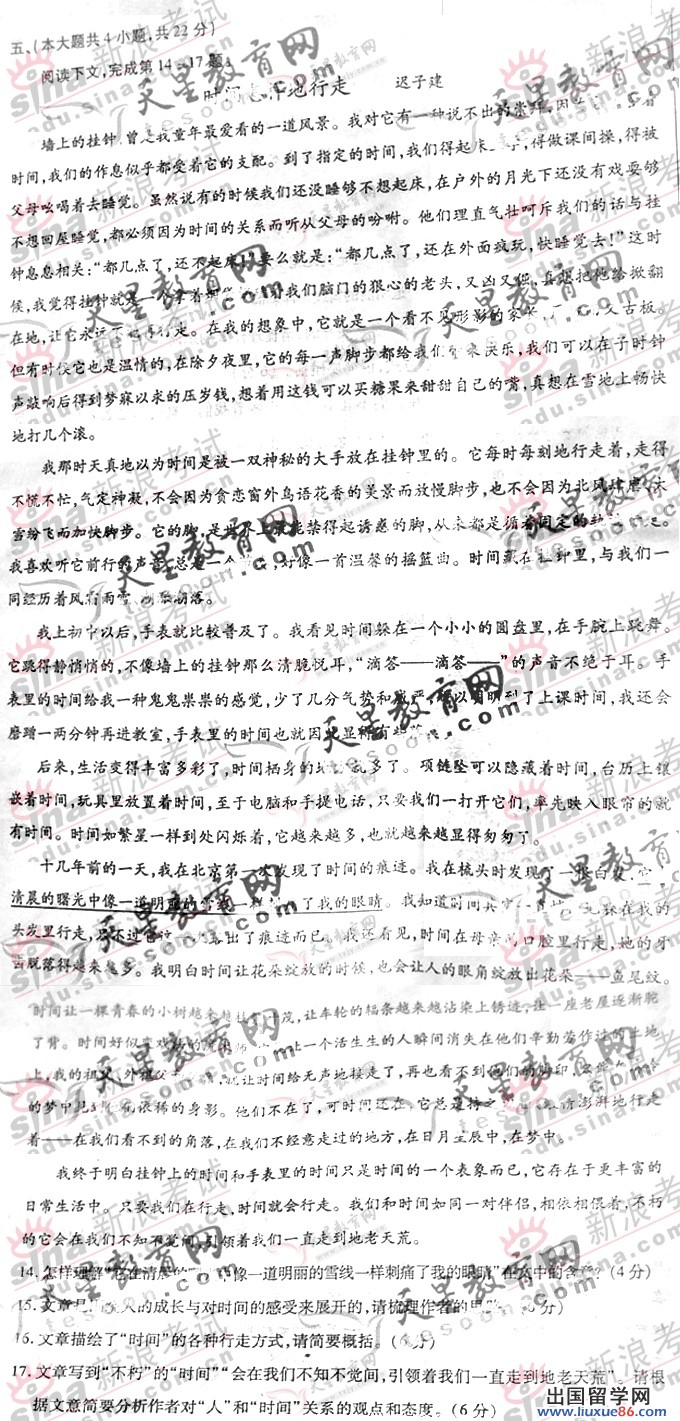 五、(本大题共4小题,共22分)
阅读下文,完成第14 17题。
时间 地行走 迟子建
墙上的挂钟,曾是我童年最爱看的一道风景。我对它有一种说不出的崇拜,因
时间,我们的作息似乎都受着它的支配。到了指定的时间,我们得起床 得做课间操,得被
父母吆喝着去睡觉。虽然说有的时候我们还没睡够不想起床,在户外的月光下还没有戏耍够
不想回屋睡觉,都必须因为时间的关系而听从父母的吩咐。他们理直气壮呵斥我们的话与挂
钟息息相关:“都几点了,还不起床!”要么就是:“都几点了,还在外面疯玩,快睡觉去!”这时
候,我觉得挂钟就是一个拿着 我们脑门的狠心的老头,又凶又 真想把他给掀翻
在地,让它永远 行走。在我的想象中,它就是一个看不见形影的家长 又古板。
但有时候它也是温情的,在除夕夜里,它的每一声脚步都给我们 来快乐,我们可以在子时钟
声敲响后得到梦寐以求的压岁钱,想着用这钱可以买糖果来甜甜自己的嘴,真想在雪地上畅快
地打几个滚。
我那时天真地以为时间是被一双神秘的大手放在挂钟里的。它每时每刻地行走着,走得
不慌不忙,气定神凝,不会因为贪恋窗外鸟语花香的美景而放慢脚步,也不会因为北风肆虐 大
雪纷飞而加快脚步。它的脚,是 上最能禁得起诱惑的脚,从来都是循着固定的
我喜欢听它前行的声音,总是一个 好像一首温馨的摇篮曲。时间藏在挂钟里,与我们一
同经历着风霜雨雪 潮落。
我上初中以后,手表就比较普及了。我看见时间躲在一个小小的圆盘里,在手腕上跳舞。
它跳得静悄悄的,不像墙上的挂钟那么清脆悦耳,“滴答——滴答——”的声音不绝于耳。手
表里的时间给我一种鬼鬼祟祟的感觉,少了几分气势和威严,所以明明到了上课时间,我还会
磨蹭一两分钟再进教室,手表里的时间也就因此显得有些
后来,生活变得丰富多彩了,时间栖身的 多了。项链坠可以隐藏着时间,台历上镶
嵌着时间,玩具里放置着时间,至于电脑和手提电话,只要我们一打开它们,率先映入眼帘的就
有时间。时间如繁星一样到处闪烁着,它越来越多,也就越来越显得匆匆了。
十几年前的一天,我在北京第一次发现了时间的痕迹。我在梳头时发现了一根白发 它
清晨的曙光中像一道明丽的雪线一样 了我的眼睛。我知道时间其实 躲在我的
头发里行走,只不过它 出了痕迹而已。我还看见,时间在母亲的口腔里行走,她的牙
齿脱落得越来越多。我明白时间让花朵绽放的时候,也会让人的眼角绽放出花朵——鱼尾纹。
时间让一棵青春的小树越来越 茂,让车轮的辐条越来越沾染上锈迹,让一座老屋逐渐驼
了背。时间好似变戏 的魔术师 让一个活生生的人瞬间消失在他们辛勤劳作过的土地
上,我的祖父 外祖父 就让时间给无声地接走了,再也看不到他们的脚印
的梦中见 依稀的身影。他们不在了,可时间还在,它总是持之 激情澎湃地行走
着——在我们看不到的角落,在我们不经意走过的地方,在日月星辰中,在梦中。
我终于明白挂钟上的时间和手表里的时间只是时间的一个表象而已,它存在于更丰富的
日常生活中。只要我们在行走,时间就会行走。我们和时间如同一对伴侣,相依相偎着,不朽
的它会在我们不知不觉间,引领着我们一直走到地老天荒。
14. 怎样理解“它在清晨的 中像一道明丽的雪线一样刺痛了我的眼睛”在文中的含意?(4分)
15. 文章是 人的成长与对时间的感受来展开的,请梳理作者的思路。(6分)
16. 文章描绘了“时间”的各种行走方式,请简要概括。(6分)
17. 文章写到“不朽”的“时间”“会在我们不知不觉间,引领着我们一直走到地老天荒”。请根
据文意简要分析作者对“人”和“时间”关系的观点和态度。(6分)
出国留学网
www.liuxue86.com